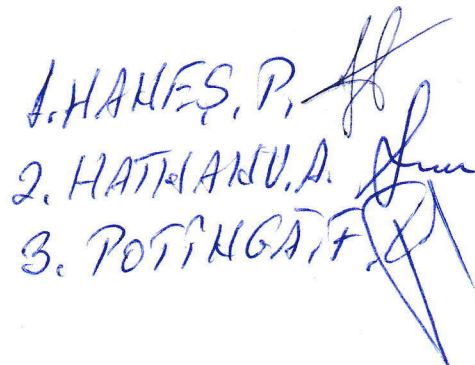 1. HANEȘ. P.
2. HATNANU. A.
3. POTÎNGĂ. F.